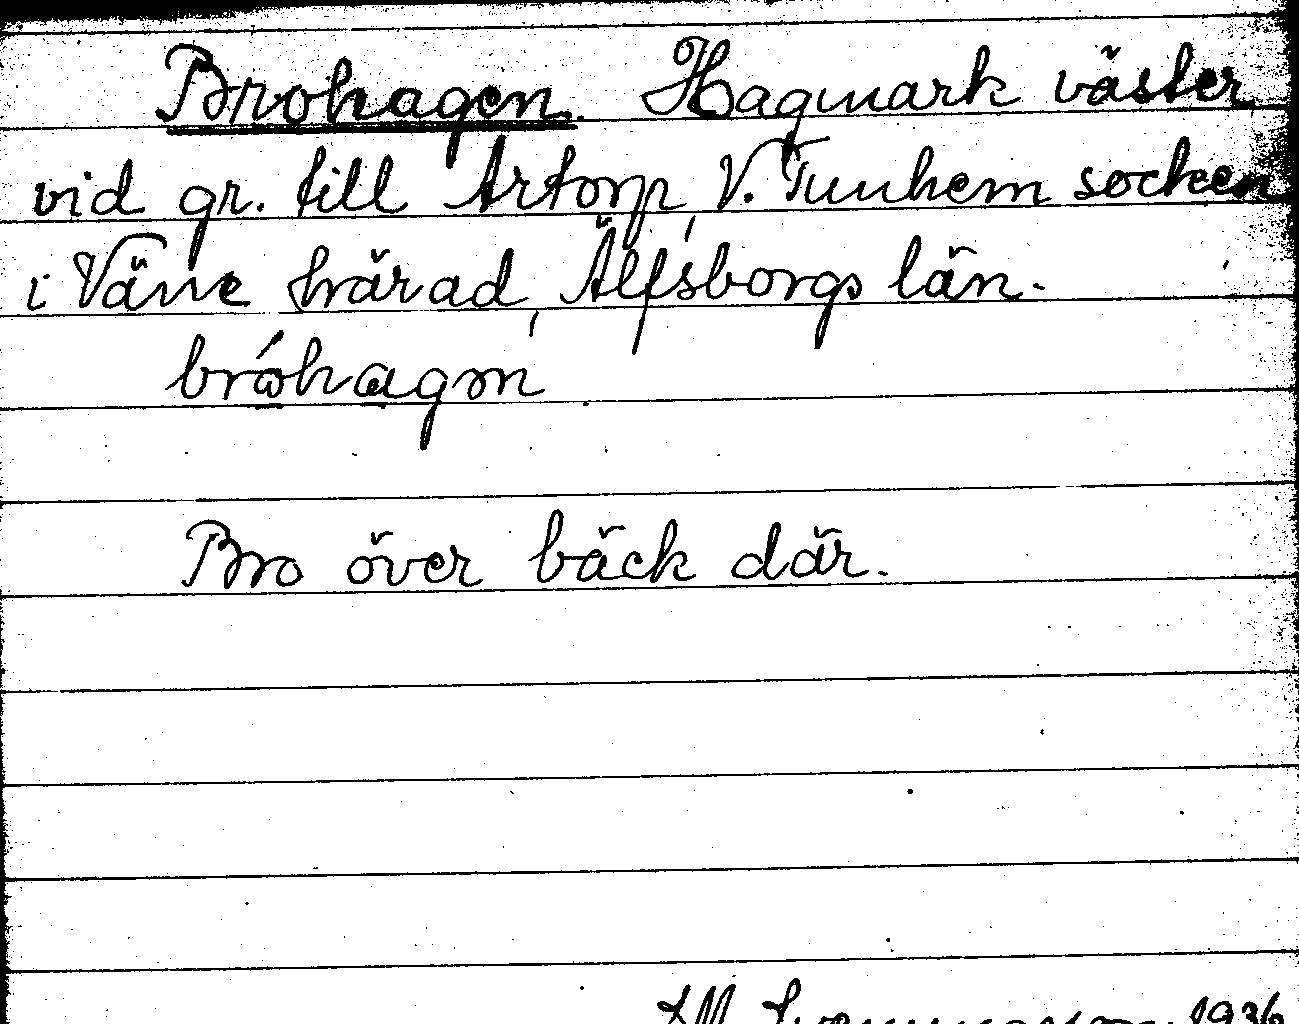 Brohagen. Hagmark väster
vid gr. till Artorp, V. Tunhem socken
i Väne härad, Älfsborgs län.
bróhagen
Bro över bäck där.
1936